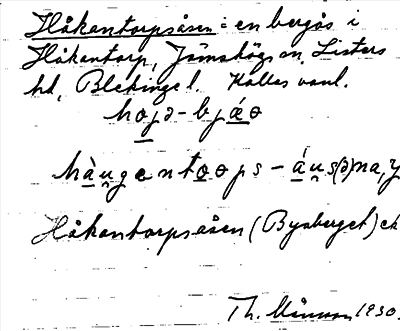 Håkantorpsåsen = en bergås i
Håkantorp, Jämshögs sn, Listers
hd, Blekinge l. Kallas vanl.
hojə - bjáə
hàu̯gentoops - áu̯s(ə)na, y
Håkantorpsåsen (Byaberget) ek
Th. Månsson 1930.